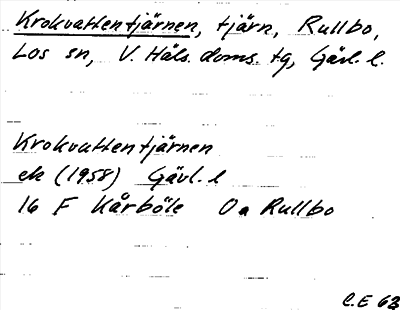 Krokvattentjärnen, tjärn, Rullbo,
Los sn, V. Häls. doms. tg, Gävl. l.
Krokvattentjärnen
ek (1958) Gävl. l
16 F Kårböle 0a Rullbo
C.E 63